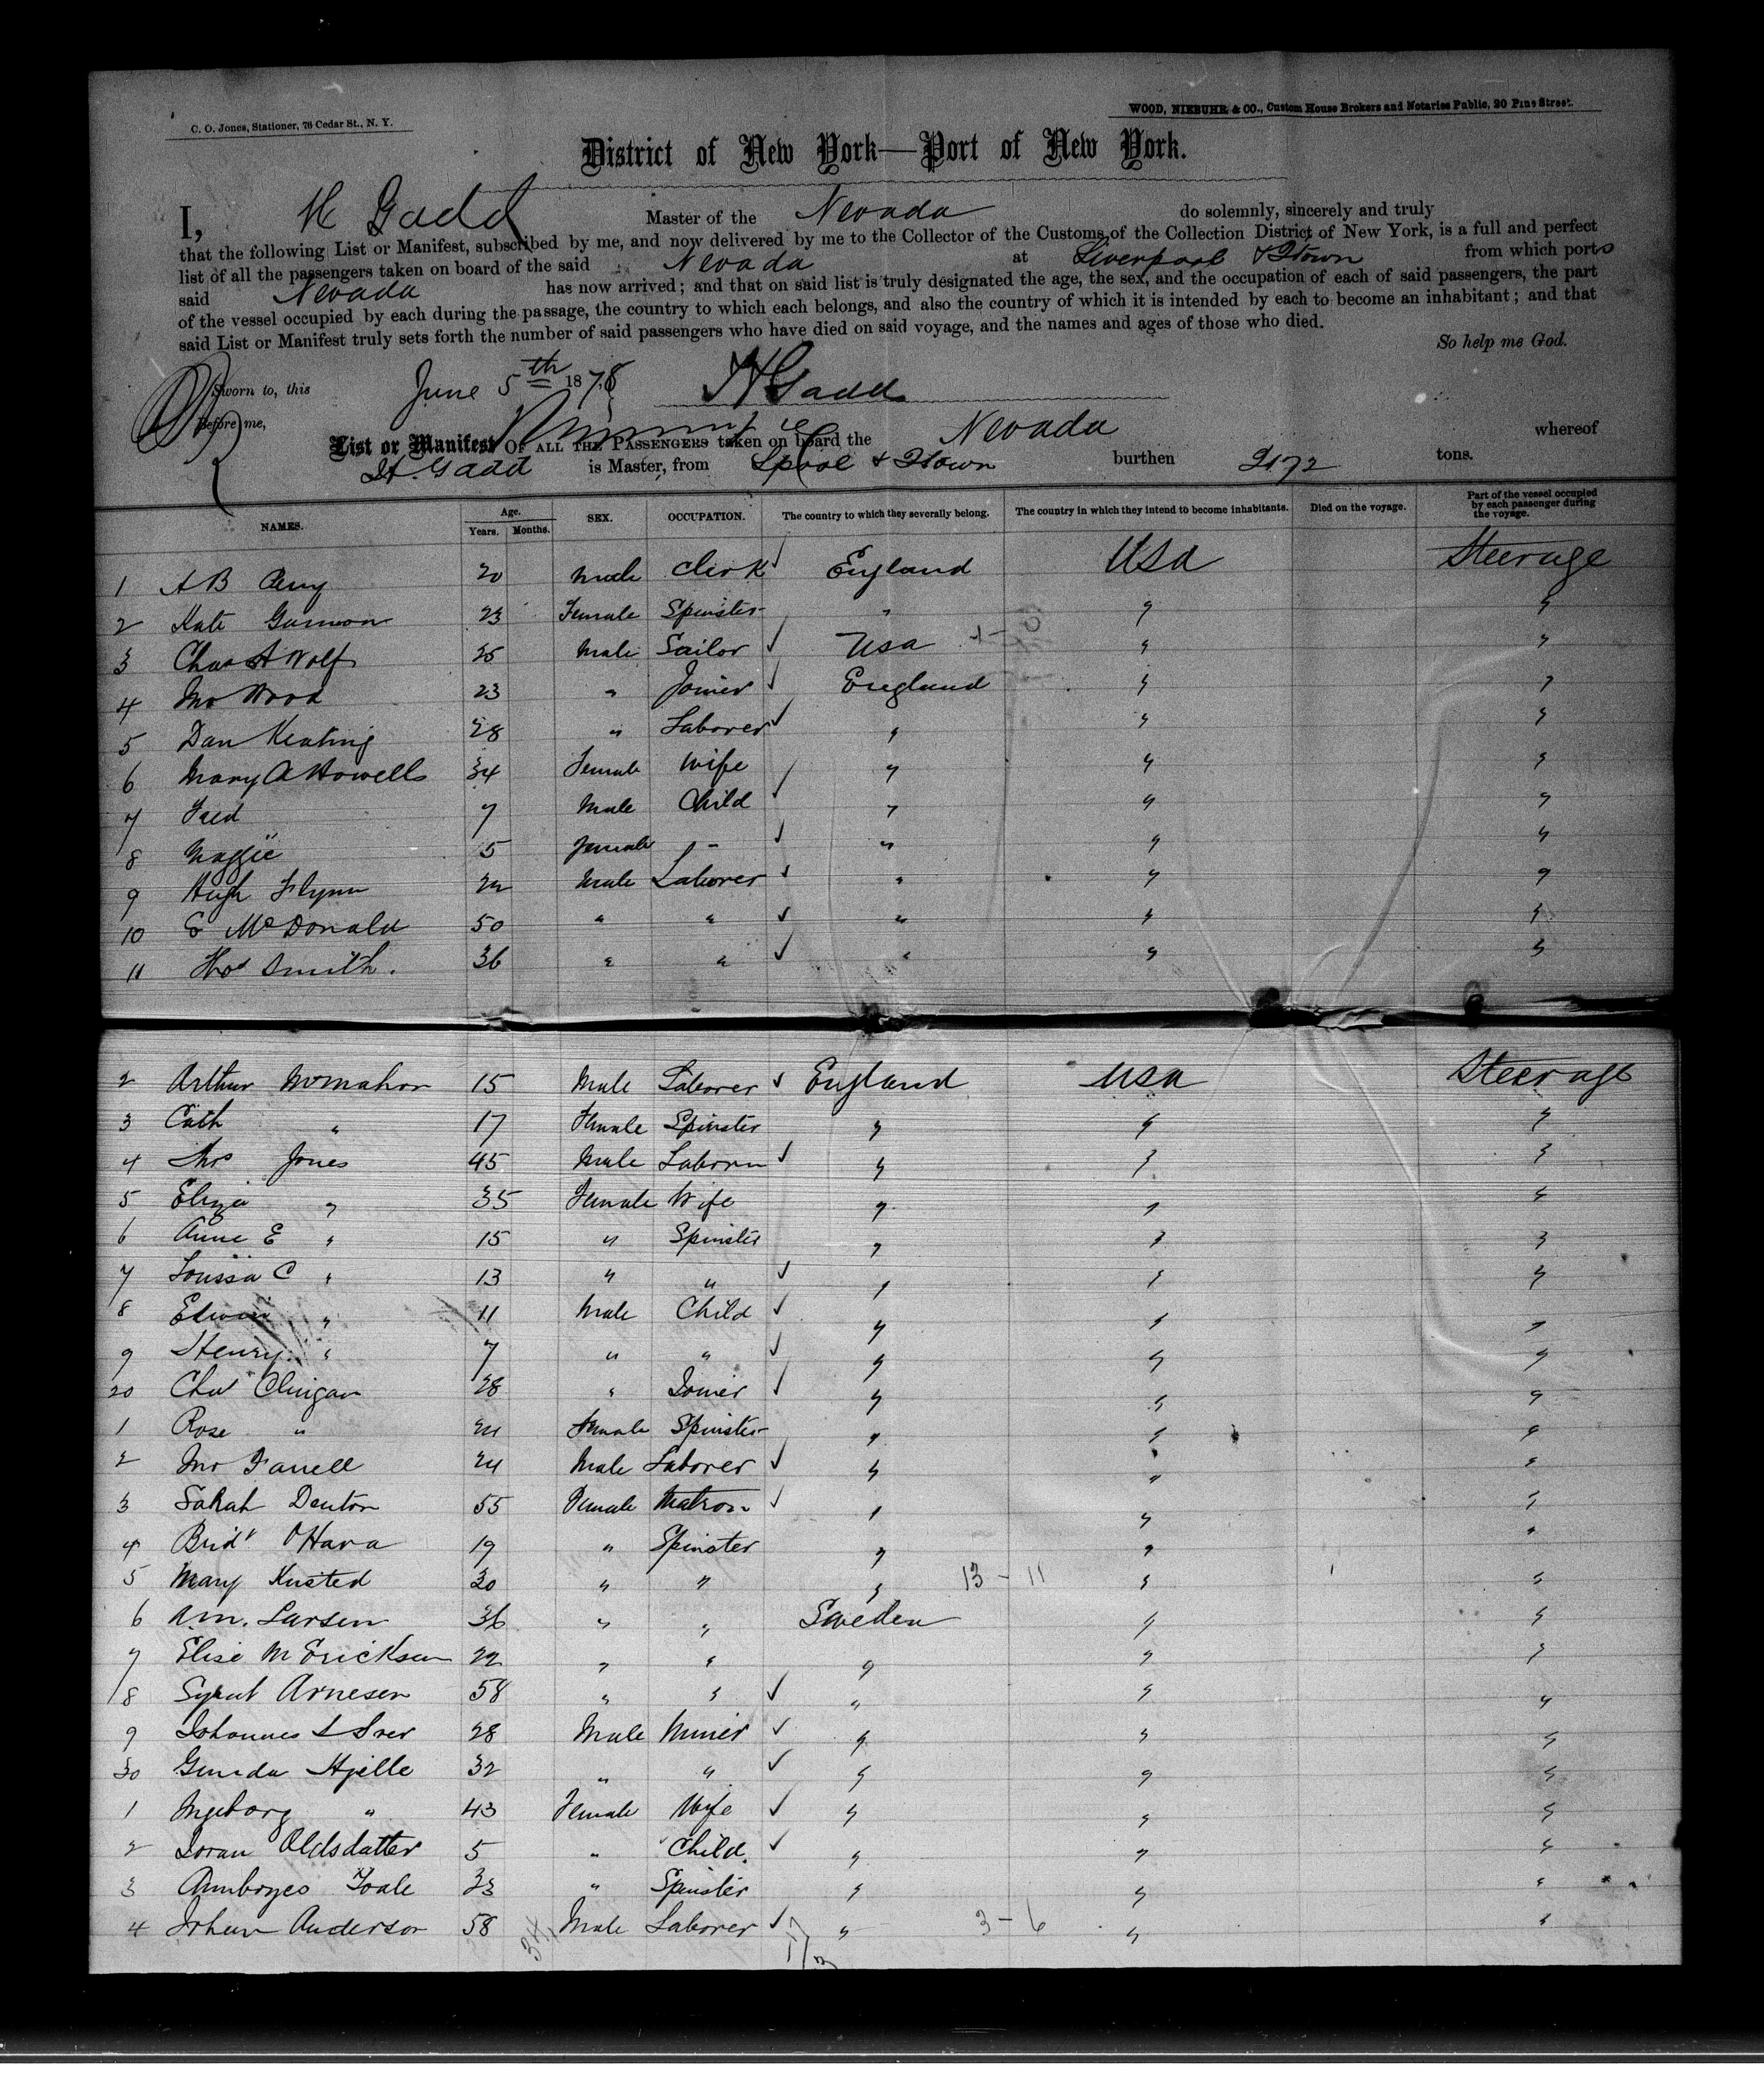 C. O. Jones, Stationer, 76 Cedar St., N. Y.
WOOD, NIEBUHR & CO., Custom House Brokers and Notaries Public, 20 Pine Street.
District of New York—Port of New York.
I, H Gadd Master of the Nevada do solemnly, sincerely and truly
that the following List or Manifest, subscribed by me, and now delivered by me to the Collector of the Customs of the Collection District of New York, is a full and perfect
list of all the passengers taken on board of the said Nevada at Liverpool & Qtown from which ports
said Nevada has now arrived; and that on said list is truly designated the age, the sex, and the occupation of each of said passengers, the part
of the vessel occupied by each during the passage, the country to which each belongs, and also the country of which it is intended by each to become an inhabitant; and that
said List or Manifest truly sets forth the number of said passengers who have died on said voyage, and the names and ages of those who died.
So help me God.
Sworn to, this June 5th 1878 H Gadd
Before me,
List or Manifest OF ALL THE PASSENGERS taken on board the Nevada whereof
H. Gadd is Master, from Lpool & Qtown burthen tons.
NAMES. Age. Years. Months. SEX. OCCUPATION. The country to which they severally belong. The country in which they intend to become inhabitants. Died on the voyage. Part of the vessel occupied by each passenger during the voyage.
1 A B 20 Male Clerk ✓ England USA Steerage
2 Kate Gannon 23 Female Spinster " " "
3 Chas A Wolf 25 Male Sailor ✓ USA " "
4 Jno Wood 23 " Joiner ✓ England " "
5 Dan Keating 28 " Laborer ✓ " " "
6 Mary A Howells 34 Female Wife " " "
7 Fred 7 Male Child ✓ " " "
8 Maggie 5 Female " ✓ " " "
9 Hugh Flynn 22 Male Laborer ✓ " " "
10 McDonald 50 " " ✓ " " "
11 Thos Smith. 36 " " ✓ " " "
2 Arthur McMahon 15 Male Laborer ✓ England USA Steerage
3 Cath " 17 Female Spinster " " "
4 Thos Jones 45 Male Laborer ✓ " " "
5 Eliza " 35 Female Wife " " "
6 Anne E " 15 " Spinster " " "
7 Louisa C " 13 " " ✓ " " "
8 Edwin " 11 Male Child ✓ " " "
9 Henry " 7 " " ✓ " " "
20 Chas Clingan 28 " Joiner ✓ " " "
1 Rose " 24 Female Spinster " " "
2 Jno Farrell 24 Male Laborer ✓ " " "
3 Sarah Denton 55 Female Matron ✓ " " "
4 Bridt O'Hara 19 " Spinster " " "
5 Mary Kusted 30 " " " 13 - 11 " "
6 A.M. Larsen 36 " " Sweden " "
7 Elise M Ericksen 22 " " " " "
8 Arnesen 58 " " ✓ " " "
9 Johannes 28 Male Miner ✓ " " "
30 Hjelle 32 " " ✓ " " "
1 Ingeborg " 43 Female Wife ✓ " " "
2 Joran Oldsdatter 5 " Child. ✓ " " "
3 33 " Spinster " " "
4 Johan Anderson 58 Male Laborer ✓ " 3 - 6 " "
34